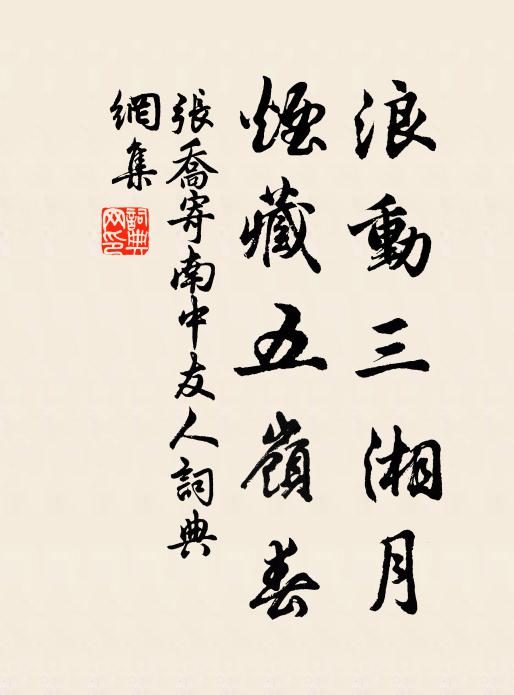 浪動三湘月
煙藏五嶺春
張喬寄南中友人詞典
網集
詞典
网印